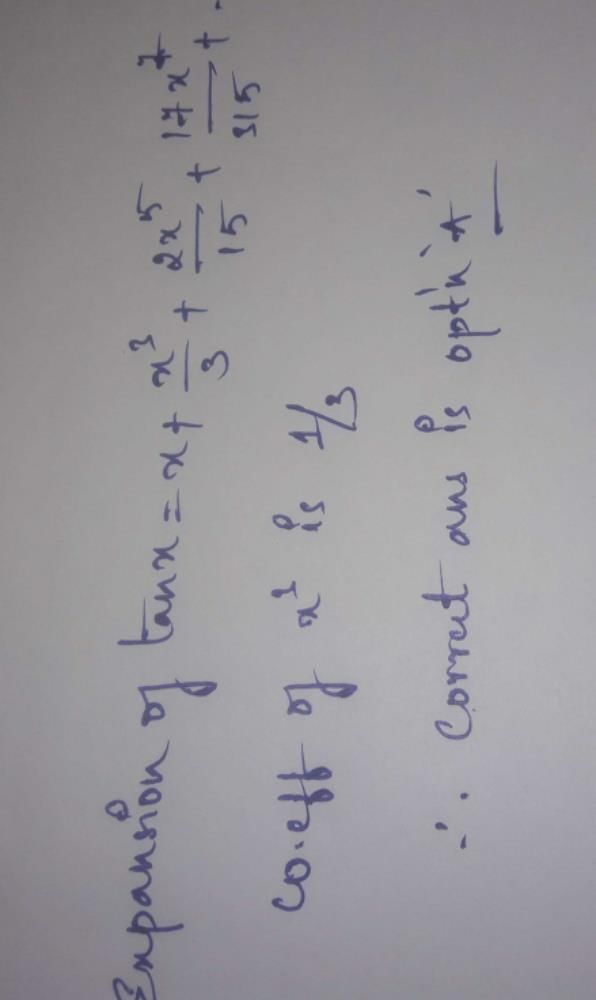 Expansion of tan x = x + x³/3 + 2x⁵/15 + 17x⁷/315 + .
co.eff of x³ is 1/3
∴ Correct ans is optn 'A'